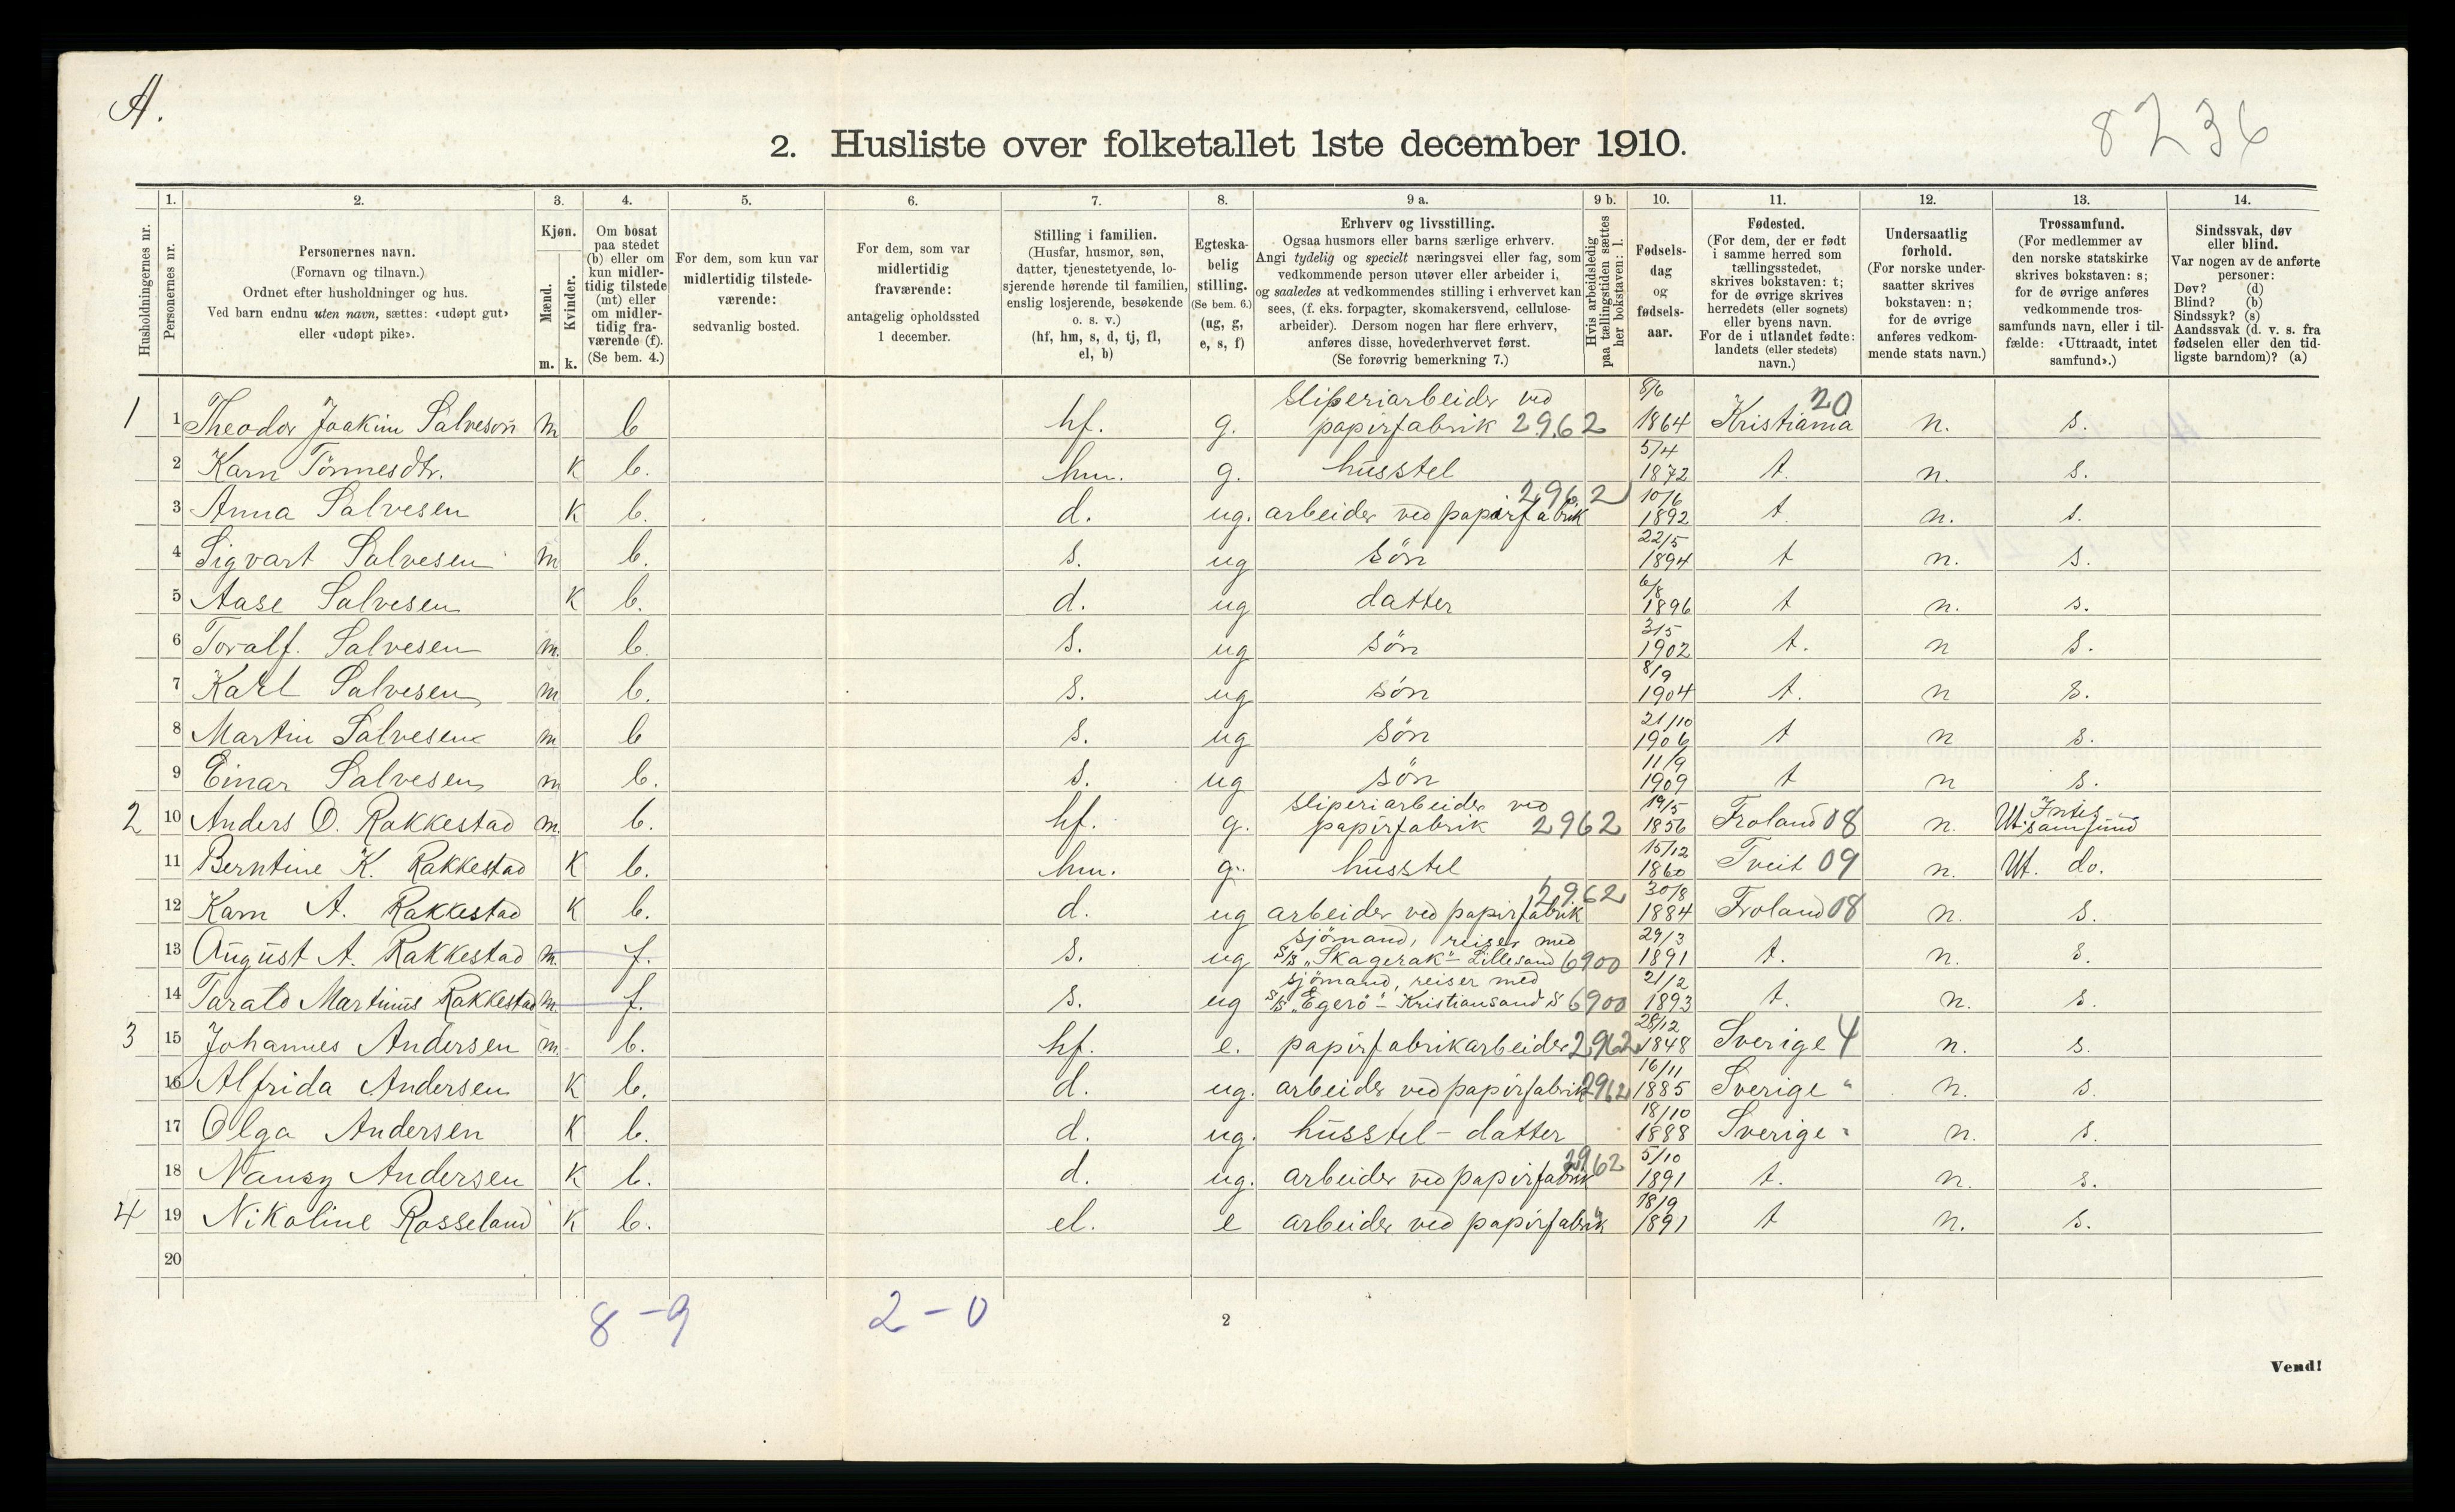 A.
8236
2. Husliste over folketallet 1ste december 1910.
Husholdningernes nr.
1. Personernes nr.
2. Personernes navn.
(Fornavn og tilnavn.)
Ordnet efter husholdninger og hus.
Ved barn endnu uten navn, sættes: «udøpt gut»
eller «udøpt pike».
3. Kjøn.
Mænd. m.
Kvinder. k.
4. Om bosat
paa stedet
(b) eller om
kun midler-
tidig tilstede
(mt) eller
om midler-
tidig fra-
værende (f).
(Se bem. 4.)
5. For dem, som kun var
midlertidig tilstede-
værende:
sedvanlig bosted.
6. For dem, som var
midlertidig
fraværende:
antagelig opholdssted
1 december.
7. Stilling i familien.
(Husfar, husmor, søn,
datter, tjenestetyende, lo-
sjerende hørende til familien,
enslig losjerende, besøkende
o. s. v.)
(hf, hm, s, d, tj, fl,
el, b)
8. Egteska-
belig
stilling.
(Se bem. 6.)
(ug, g,
e, s, f)
9 a. Erhverv og livsstilling.
Ogsaa husmors eller barns særlige erhverv.
Angi tydelig og specielt næringsvei eller fag, som
vedkommende person utøver eller arbeider i,
og saaledes at vedkommendes stilling i erhvervet kan
sees, (f. eks. forpagter, skomakersvend, cellulose-
arbeider). Dersom nogen har flere erhverv,
anføres disse, hovederhvervet først.
(Se forøvrig bemerkning 7.)
9 b. Hvis arbeidsledig
paa tællingstiden sættes
her bokstaven: l.
10. Fødsels-
dag
og
fødsels-
aar.
11. Fødested.
(For dem, der er født
i samme herred som
tællingsstedet,
skrives bokstaven: t;
for de øvrige skrives
herredets (eller sognets)
eller byens navn.
For de i utlandet fødte:
landets (eller stedets)
navn.)
12. Undersaatlig
forhold.
(For norske under-
saatter skrives
bokstaven: n;
for de øvrige
anføres vedkom-
mende stats navn.)
13. Trossamfund.
(For medlemmer av
den norske statskirke
skrives bokstaven: s;
for de øvrige anføres
vedkommende tros-
samfunds navn, eller i til-
fælde: «Uttraadt, intet
samfund».)
14. Sindssvak, døv
eller blind.
Var nogen av de anførte
personer:
Døv? (d)
Blind? (b)
Sindssyk? (s)
Aandssvak (d. v. s. fra
fødselen eller den tid-
ligste barndom)? (a)
1 1 Theodor Joakim Salvesen m b hf. g. Sliperiarbeider ved papirfabrik 2962 8/6 1864 Kristiania 20 n. s.
2 Karn Tönnesdtr. k b. hm. g. husstel 5/4 1872 t. n. s.
3 Anna Salvesen k b. d. ug. arbeider ved papirfabrik 2962 10/6 1892 t n. s.
4 Sigvart Salvesen m b. s. ug sön 22/5 1894 t n. s.
5 Aase Salvesen k b. d. ug datter 6/8 1896 t n. s.
6 Toralf. Salvesen m. b. s. ug sön 3/5 1902 t. n s.
7 Karl Salvesen m b. s. ug sön 8/9 1904 t. n s.
8 Martin Salvesen m b s. ug sön 21/10 1906 t n s.
9 Einar Salvesen m b. s. ug sön 11/9 1909 t n s.
2 10 Anders O. Rakkestad m. b. hf. g. sliperiarbeider ved papirfabrik 2962 19/5 1856 Froland 08 n. Ut. Intet samfund
11 Berntine K. Rakkestad k b. hm. g. husstel 15/12 1860 Tveit 09 n. Ut. do.
12 Karn A. Rakkestad k b. d. ug arbeider ved papirfabrik 2962 30/8 1884 Froland 08 n. s.
13 August A. Rakkestad m. f. s. ug sjömand, reiser med S/S "Skagerak" - Lillesand 6900 29/3 1891 t. n. s.
14 Tarald Martinius Rakkestad m. f. s. ug sjömand, reiser med S/S "Egerö" - Kristiansand S 6900 21/2 1893 t. n. s.
3 15 Johannes Andersen m. b. hf. e. papirfabrikarbeider 2962 28/12 1848 Sverige 4 n. s.
16 Alfrida Andersen k b. d. ug. arbeider ved papirfabrik 2962 16/11 1885 Sverige " n. s.
17 Olga Andersen k b. d. ug. husstel - datter 18/10 1888 Sverige " n. s.
18 Nancy Andersen k b. d. ug. arbeider ved papirfabrik 2962 5/10 1891 t. n. s.
4 19 Nikoline Rosseland k b. el. e arbeider ved papirfabrik " 18/9 1891 t n. s.
20
8 - 9 2 - 0
2
Vend!